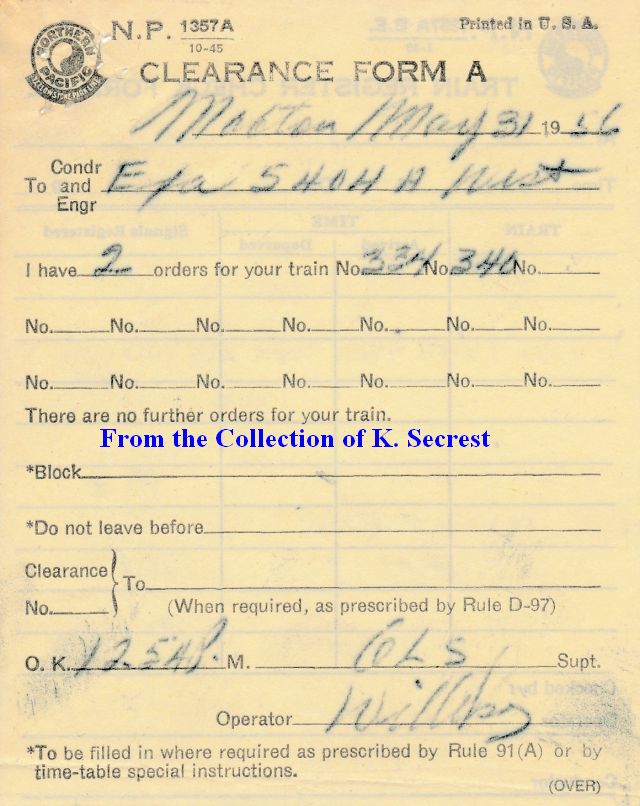 NORTHERN PACIFIC
N.P. 1357A
10-45
Printed in U. S. A.
CLEARANCE FORM A
Mabton May 31 1956
To Condr and Engr Exa 5404 A West
I have 2 orders for your train No. 334 No. 340 No.
No. No. No. No. No. No. No.
No. No. No. No. No. No. No.
There are no further orders for your train.
From the Collection of K. Secrest
*Block
*Do not leave before
Clearance No. To
(When required, as prescribed by Rule D-97)
O. K. 12 54 P. M. Supt.
Operator
*To be filled in where required as prescribed by Rule 91(A) or by
time-table special instructions.
(OVER)